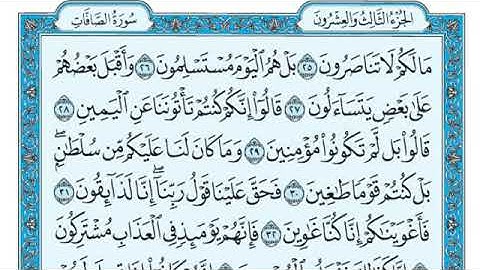 سُورَةُ الصَّافَّاتِ
الجُزْءُ الثَّالِثُ وَالعِشْرُونَ
مَا لَكُمْ لَا تَنَاصَرُونَ ٢٥ بَلْ هُمُ الْيَوْمَ مُسْتَسْلِمُونَ ٢٦ وَأَقْبَلَ بَعْضُهُمْ
عَلَىٰ بَعْضٍ يَتَسَاءَلُونَ ٢٧ قَالُوا إِنَّكُمْ كُنتُمْ تَأْتُونَنَا عَنِ الْيَمِينِ ٢٨
قَالُوا بَل لَّمْ تَكُونُوا مُؤْمِنِينَ ٢٩ وَمَا كَانَ لَنَا عَلَيْكُم مِّن سُلْطَانٍۖ
بَلْ كُنتُمْ قَوْمًا طَاغِينَ ٣٠ فَحَقَّ عَلَيْنَا قَوْلُ رَبِّنَاۖ إِنَّا لَذَائِقُونَ ٣١
فَأَغْوَيْنَاكُمْ إِنَّا كُنَّا غَاوِينَ ٣٢ فَإِنَّهُمْ يَوْمَئِذٍ فِي الْعَذَابِ مُشْتَرِكُونَ